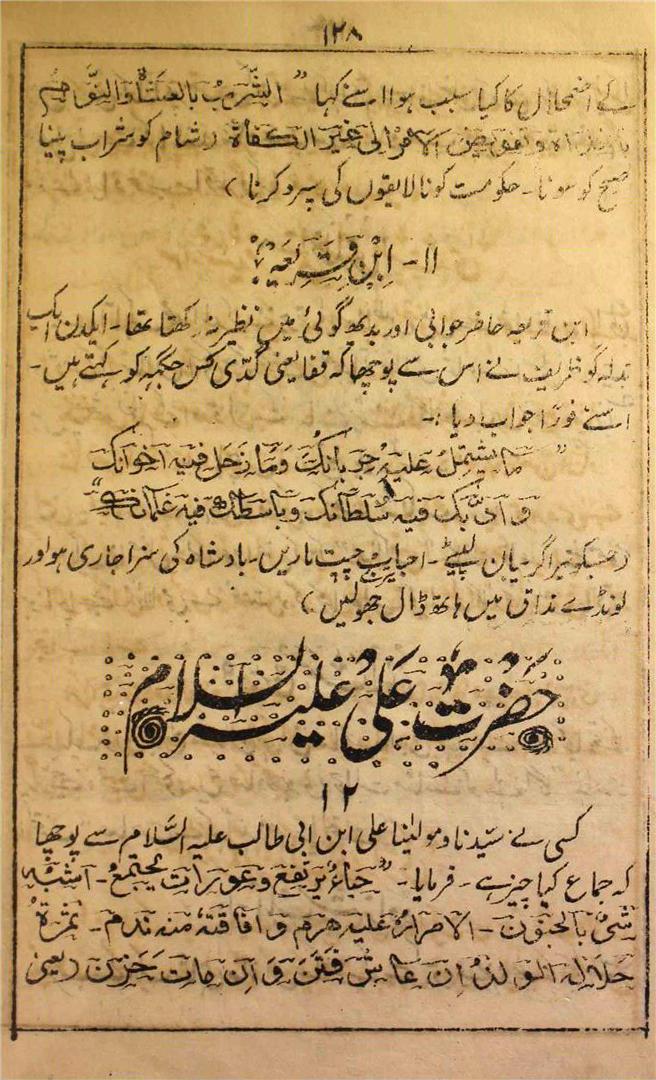 ۱۲۸
کے اضمحلال کا کیا سبب ہوا اسنے کہا ” الشُّرْبُ بِالعِشَاءِ وَالنَّوْمُ
بِالغَدَاةِ وتفویض الامرالی غیر الکفاۃ (شام کو شراب پینا
صبح کو سونا۔ حکومت کو نالایقوں کی سپرد کرنا)
۱۱۔ ابن قریعہ
ابن قریعہ حاضر جوابی اور بدیھ گوئی میں نظیر نہ رکھتا تھا۔ ایکدن ایک
بذلہ گو ظریف نے اس سے پوچھا کہ قفا یعنی گدّی کس جگہہ کو کہتے ہیں۔
اسنے فوراً جواب دیا :۔
” ما یشتمل علیہ جربانک وما زحل فیہ اخوانک
و ادّبک فیہ سلطانک وباسطک فیہ غلمانک “
(جسکو تیرا گریبان لپیٹے۔ احباب چپت ماریں۔ بادشاہ کی سزا جاری ہو اور
لونڈے مذاق میں ہاتھ ڈال جھولیں)
حضرت علی علیہ السلام
۱۲
کسی نے سیّدنا ومولٰینا علی ابن ابی طالب علیہ السَّلام سے پوچھا
کہ جماع کیا چیز ہے۔ فرمایا۔ ” حیاءٌ یرتفع وعورات یجتمع۔ اشبہ
شیٔ بالجنون۔ الاصرار علیہ ھرم و افاقتہ منہ ندم۔ ثمرۃ
حلالہ الولد ان عاش فتن وان مات حزن (یعنی